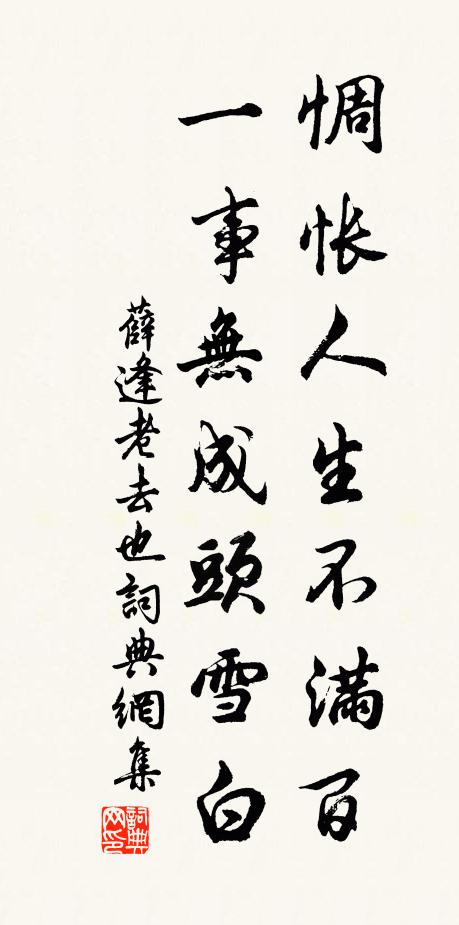 惆悵人生不滿百
一事無成頭雪白
薛逢老去也詞典網集
詞典网印